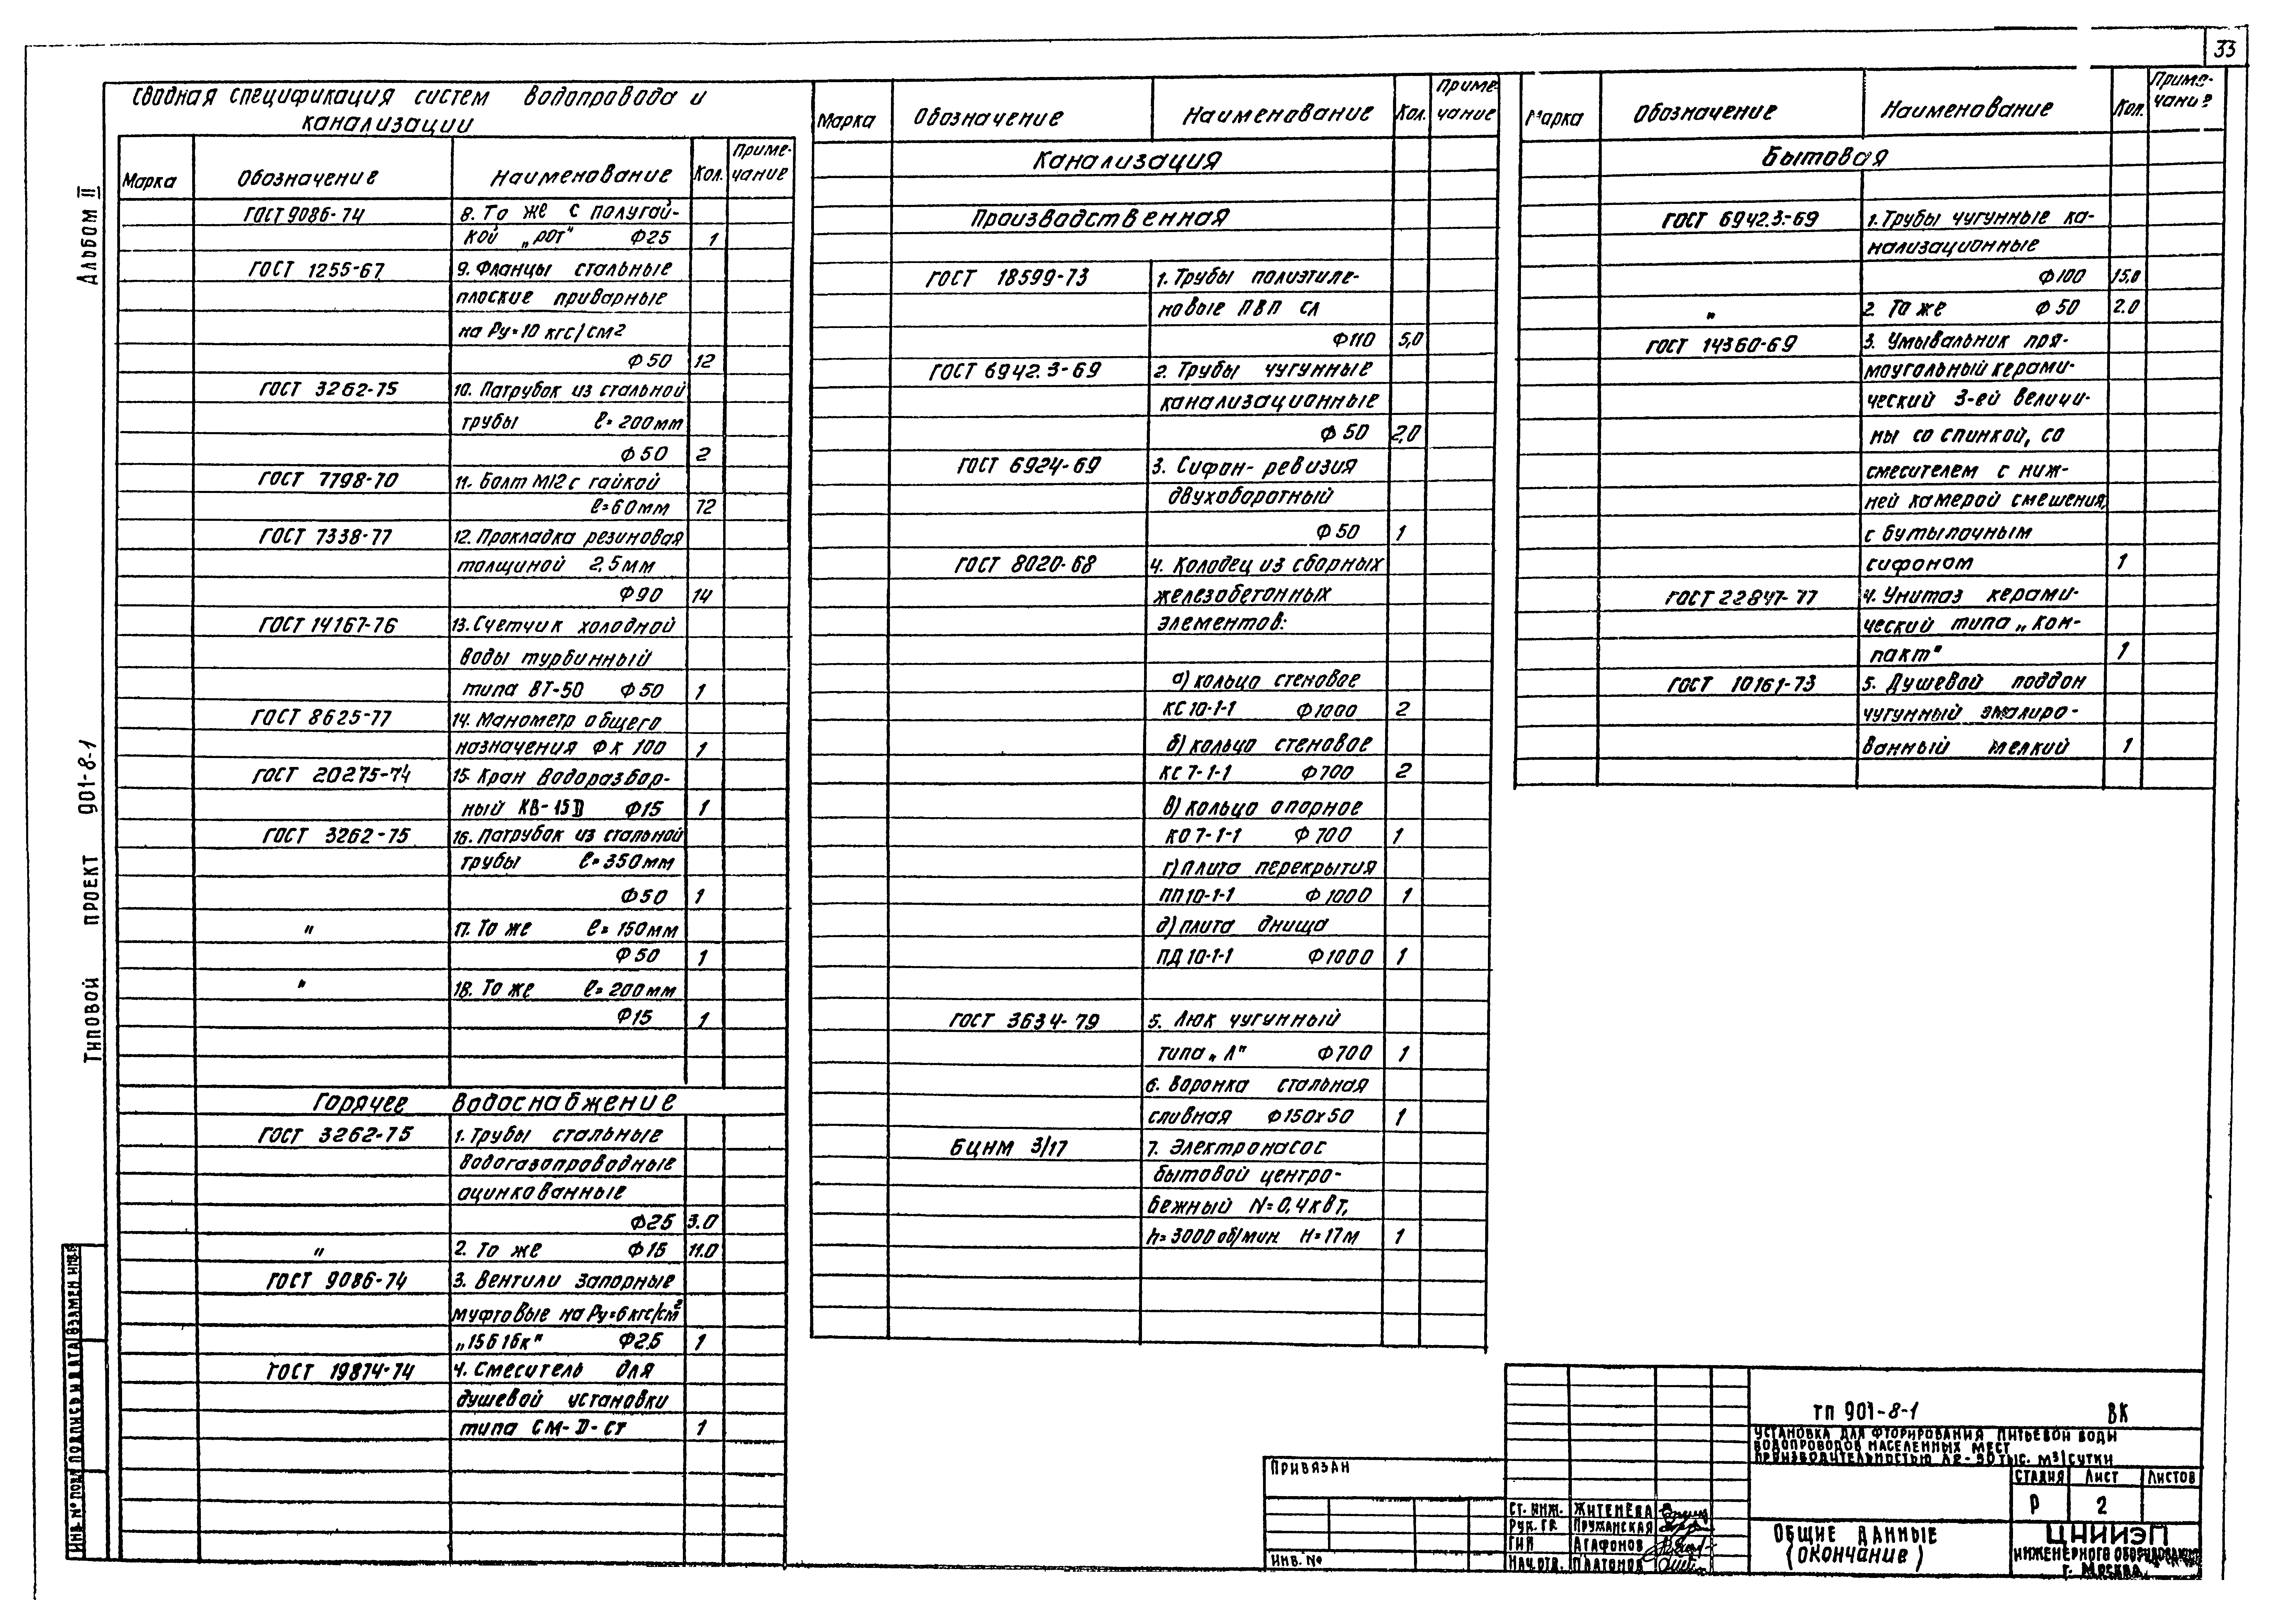 33
Альбом II
Типовой проект 901-8-1
Сводная спецификация систем водопровода и
канализации
Марка Обозначение Наименование Кол. Приме-
чание
ГОСТ 9086-74 8. То же с полугай-
кой „рот" Ф25 1
ГОСТ 1255-67 9. Фланцы стальные
плоские приварные
на Ру=10 кгс/см2
Ф50 12
ГОСТ 3262-75 10. Патрубок из стальной
трубы ℓ=200мм
Ф50 2
ГОСТ 7798-70 11. Болт М12 с гайкой
ℓ=60мм 72
ГОСТ 7338-77 12. Прокладка резиновая
толщиной 2,5мм
Ф90 14
ГОСТ 14167-76 13. Счетчик холодной
воды турбинный
типа ВТ-50 Ф50 1
ГОСТ 8625-77 14. Манометр общего
назначения Фк 100 1
ГОСТ 20275-74 15. Кран водоразбор-
ный КВ-15Д Ф15 1
ГОСТ 3262-75 16. Патрубок из стальной
трубы ℓ=350мм
Ф50 1
" 17. То же ℓ=150мм
Ф50 1
" 18. То же ℓ=200мм
Ф15 1
Горячее водоснабжение
ГОСТ 3262-75 1. Трубы стальные
водогазопроводные
оцинкованные
Ф25 3.0
" 2. То же Ф15 11.0
ГОСТ 9086-74 3. Вентили запорные
муфтовые на Ру=6кгс/см2
„15б1бк" Ф25 1
ГОСТ 19874-74 4. Смеситель для
душевой установки
типа СМ-Д-СТ 1
Марка Обозначение Наименование Кол. Приме-
чание
Канализация
Производственная
ГОСТ 18599-73 1. Трубы полиэтиле-
новые ПВП СЛ
Ф110 5,0
ГОСТ 6942.3-69 2. Трубы чугунные
канализационные
Ф50 2,0
ГОСТ 6924-69 3. Сифон-ревизия
двухоборотный
Ф50 1
ГОСТ 8020-68 4. Колодец из сборных
железобетонных
элементов:
а) кольцо стеновое
КС 10-1-1 Ф1000 2
б) кольцо стеновое
КС 7-1-1 Ф700 2
в) кольцо опорное
КО 7-1-1 Ф700 1
г) плита перекрытия
ПП10-1-1 Ф1000 1
д) плита днища
ПД 10-1-1 Ф1000 1
ГОСТ 3634-79 5. Люк чугунный
типа „Л" Ф700 1
6. Воронка стальная
сливная Ф150х50 1
БЦНМ 3/17 7. Электронасос
бытовой центро-
бежный N=0,4квт,
n=3000 об/мин H=17м 1
Марка Обозначение Наименование Кол. Приме-
чание
Бытовая
ГОСТ 6942.3-69 1. Трубы чугунные ка-
нализационные
Ф100 15,0
" 2. То же Ф50 2.0
ГОСТ 14360-69 3. Умывальник пря-
моугольный керами-
ческий 3-ей величи-
ны со спинкой, со
смесителем с ниж-
ней камерой смешения,
с бутылочным
сифоном 1
ГОСТ 22847-77 4. Унитаз керами-
ческий типа „Ком-
пакт" 1
ГОСТ 10161-73 5. Душевой поддон
чугунный эмалиро-
ванный мелкий 1
Инв. № подл. Подпись и дата Взамен инв.№
Привязан
Инв. №
Ст. инж. Житенева
Рук. гр. Пружанская
ГИП Агафонов
Нач. отд. Платонов
ТП 901-8-1 ВК
Установка для фторирования питьевой воды
водопроводов населенных мест
производительностью 12-50 тыс. м3/сутки
Стадия Лист Листов
Р 2
Общие данные
(окончание)
ЦНИИЭП
инженерного оборудования
г. Москва